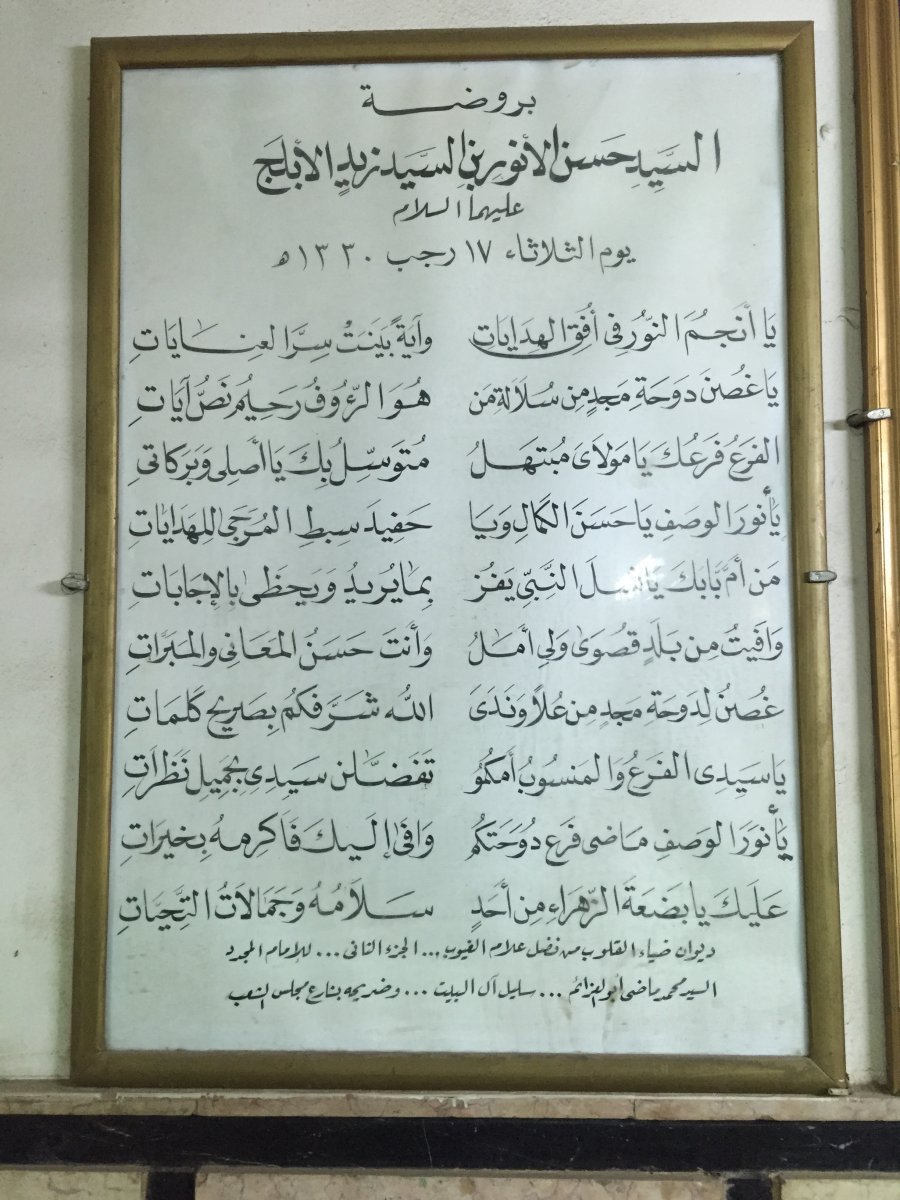 بروضة
السَّيِّدِ حَسَن الأَنوَرِ بنِ السَّيِّد زيدٍ الأبلَج
عليهما السلام
يوم الثلاثاء ١٧ رجب ١٣٣٠ه
يَا أَنجُمَ النّورِ فى أُفُقِ الهِدَايَاتِ وآيَةً بَيَّنَتْ سِرَّ العِنَايَاتِ
يَا غُصْنَ دوحَةِ مَجدٍ مِن سُلَالَةِ مَن هُوَ الرَّءُوفُ رَحِيمٌ نَصُّ آيَاتِ
الفَرعُ فَرعُكَ يَا مَولَاىَ مُبتَهِلٌ مُتَوَسِّلٌ بِكَ يَا أَصلِى وَبَرَكَاتى
يَا أَنورَ الوَصفِ يَا حَسَنَ الكَمَالِ وَيَا حَفِيدَ سِبطِ المُرَجَى لِلهِدَايَاتِ
مَن أَمَّ بَابَكَ يَا نسلَ النَّبِىِّ يَفُز بِمَا يُرِيدُ وَيَحظَى بِالإِجَابَاتِ
وَافَيتُ مِن بَلَدٍ قُصوَى وَلِى أَمَلٌ وَأَنتَ حَسَنُ المَعَانى والمَبَرَّاتِ
غُصنٌ لِدَوحَةِ مَجدٍ مِن عُلاً وَنَدَى اللهُ شَرَّفَكُم بِصَرِيحِ كَلِمَاتِ
يَا سَيِدِى الفَرعُ وَالمَنسُوبُ أَمَّكمُو تَفَضَّلَن سَيِدِى بِجَمِيلِ نَظَرَاتِ
يَا أَنوَرَ الوَصفِ مَاضِى فَرع دُوحَتكُم وَافَى إِلَيكَ فَاكرِمهُ بِخَيرَاتِ
عَلَيكَ يا بضعَةَ الزَّهرَاءِ مِن أَحَدٍ سَلَامُهُ وَجَمَالَاتُ التَّحِيَّاتِ
ديوان ضياء القلوب من فضل علام الغيوب ... الجزء الثانى ... للإمام المجدد
السيد محمد ماضى أبو العزائم ... سليل آل البيت ... وضريحه بشارع مجلس الشعب